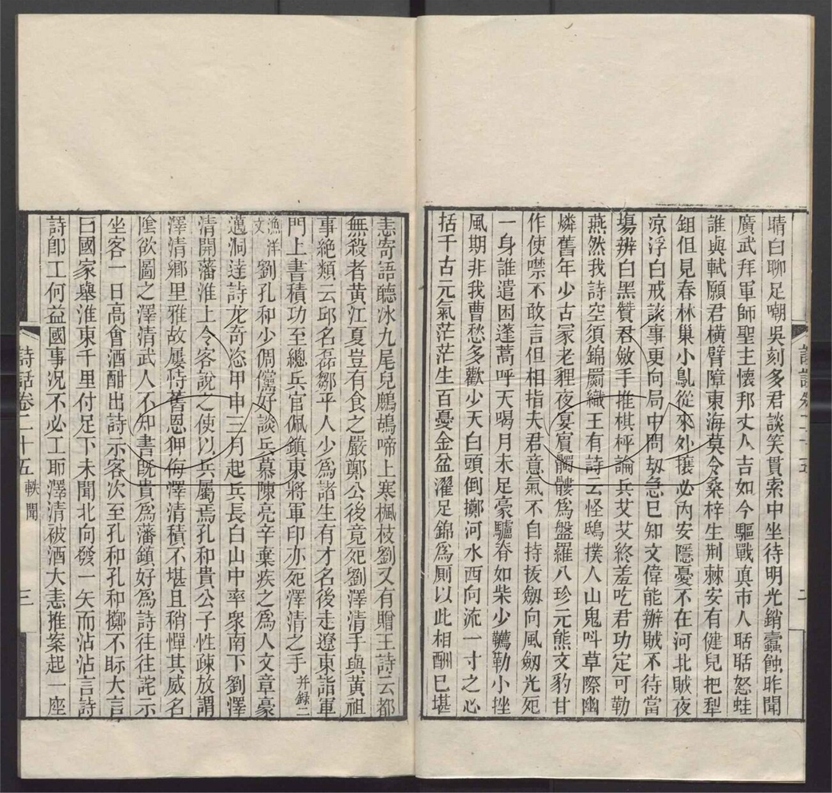 晴白聊足嘲吳刻多君談笑貫索中坐待明光銷蠹蝕昨聞
廣武拜軍師聖主懷邦丈人吉如今驅戰真巿人聒聒怒蛙
誰與軾願君橫臂障東海莫令桑梓生荆棘安有健兒把犁
鉏但見春林巢小鳦從來外攘必內安隱憂不在河北賊夜
涼浮白戒談事更向局中問刼急已知文偉能辦賊不待當
塲辨白黑贊君敏手推棋枰論兵艾艾終羞吃君功定可勒
燕然我詩空須錦罽織王有詩云怪鴟撲人山鬼呌草際幽
燐舊年少古冢老貍夜宴賓髑髏爲盤羅八珍元熊文豹甘
作使噤不敢言但相指夫君意氣不自持拔劒向風劒光死
一身誰遣困蓬蒿呼天喝月未足豪驢脊如柴少韉勒小挫
風期非我曹愁多歡少天白頭倒擲河水西向流一寸之心
括千古元氣茫茫生百憂金盆濯足錦爲厠以此相酬已堪
二
恚寄語聽冰九尾兒鸕鴣啼上寒楓枝劉又有贈王詩云都
無殺者黃江夏豈有食之嚴鄭公後竟死劉澤清手與黃祖
事絶類云邱名磊鄒平人少爲諸生有才名後走遼東詣軍
門上書積功至總兵官佩鎭東將軍印亦死澤清之手并錄二
漁洋文 劉孔和少倜儻好談兵慕陳亮辛棄疾之爲人文章豪
邁洞達詩尤奇恣甲申三月起兵長白山中率衆南下劉澤
清開藩淮上令客說之使以兵屬焉孔和貴公子性疎放謂
澤清鄉里雅故屢恃舊恩狎侮澤清積不堪且稍憚其威名
陰欲圖之澤清武人不知書旣貴爲藩鎭好爲詩往往詫示
坐客一日高會酒酣出詩示客次至孔和孔和擲不眎大言
曰國家舉淮東千里付足下未聞北向發一矢而沾沾言詩
詩卽工何益國事況不必工耶澤清被酒大恚推案起一座
詩話卷二十五 軼聞 三